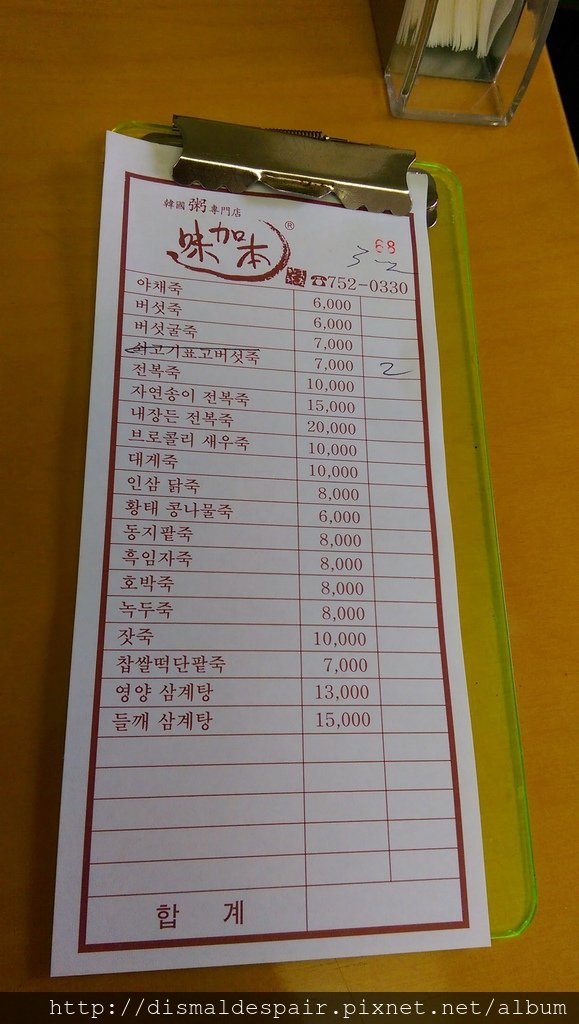 韓國 粥 專門店
味加本 ®
68
3-2
☎752-0330
야채죽 6,000
버섯죽 6,000
버섯굴죽 7,000
쇠고기표고버섯죽 7,000 2
전복죽 10,000
자연송이 전복죽 15,000
내장든 전복죽 20,000
브로콜리 새우죽 10,000
대게죽 10,000
인삼 닭죽 8,000
황태 콩나물죽 6,000
동지팥죽 8,000
흑임자죽 8,000
호박죽 8,000
녹두죽 8,000
잣죽 10,000
찹쌀떡단팥죽 7,000
영양 삼계탕 13,000
들깨 삼계탕 15,000
합 계
http://dismaldespair.pixnet.net/album